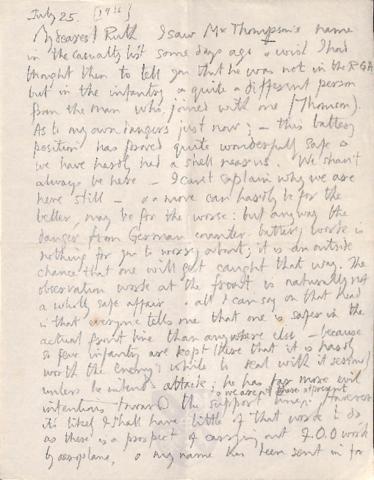 July 25. [1916]
My dearest Ruth I saw Mr Thompson's name
in the casualty list some days ago & wish I had
thought then to tell you that he was not in the R.G.A
but in the infantry & quite a different person
from the man who joined with me (Thomson).
As to my own dangers just now; – this battery
position has proved quite wonderfully safe &
we have hardly had a shell near us. We shan't
always be here – I can't explain why we are
here still – & a move can hardly be for the
better, may be for the worse: but anyway the
danger from German counter battery work is
nothing for you to worry about; it is an outside
chance that one will get caught that way. The
observation work at the front is naturally not
a wholly safe affair & all I can say on that head
is that everyone tells one that one is safer in the
actual front line than anywhere else – because
so few infantry are kept there that it is hardly
worth the enemy's while to deal with it seriously
unless he intends attack; he has far more evil
intentions towards the support lines. However
it's likely I shall have little of that work to do
as there is a prospect of carrying out F.O.O work
by aeroplane, & my name has been sent in for